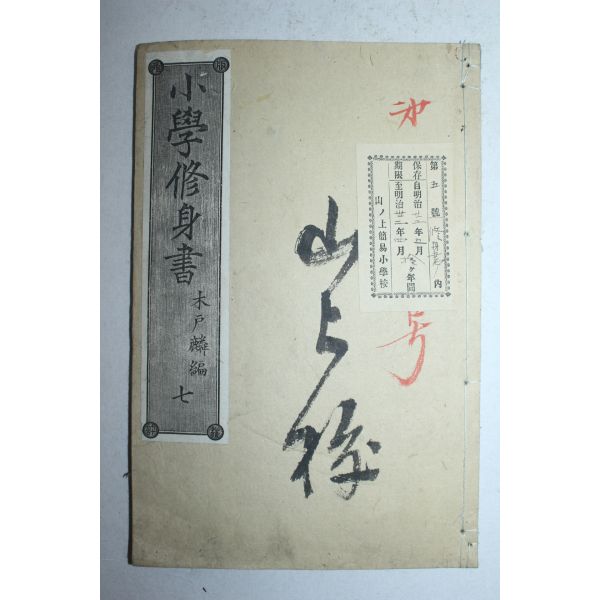 小學修身書
木戸麟編
七
第
号
第五號
內
保存自明治廿二年五月
期限至明治廿二年四月
ヶ年間
山ノ上簡易小學校
山上校